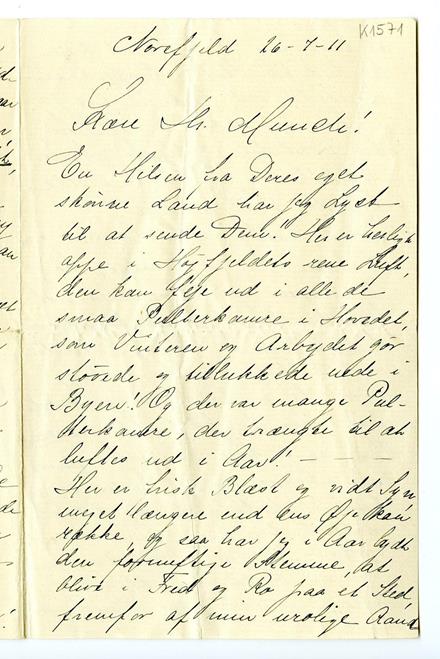 K1571
Norefjeld 26-7-11
Kære Hr. Munch!
En Hilsen fra Deres eget
skønne Land har jeg Lyst
til at sende Dem! Her er herligt
oppe i Højfjeldets rene Luft,
den kan feje ud i alle de
smaa Pulterkamre i Hovedet,
som Vinteren og Arbejdet gør
støvede og tillukkede nede i
Byen! Og der var mange Pul-
terkamre, der trængte til at
luftes ud i Aar! — —
Her er frisk Blæst og vidt Syn
meget længere end Ens Øje kan
række, og saa har jeg i Aar lydt
den fornuftige Stemme, at
blive i Fred og Ro paa et Sted
fremfor af min urolige Aand